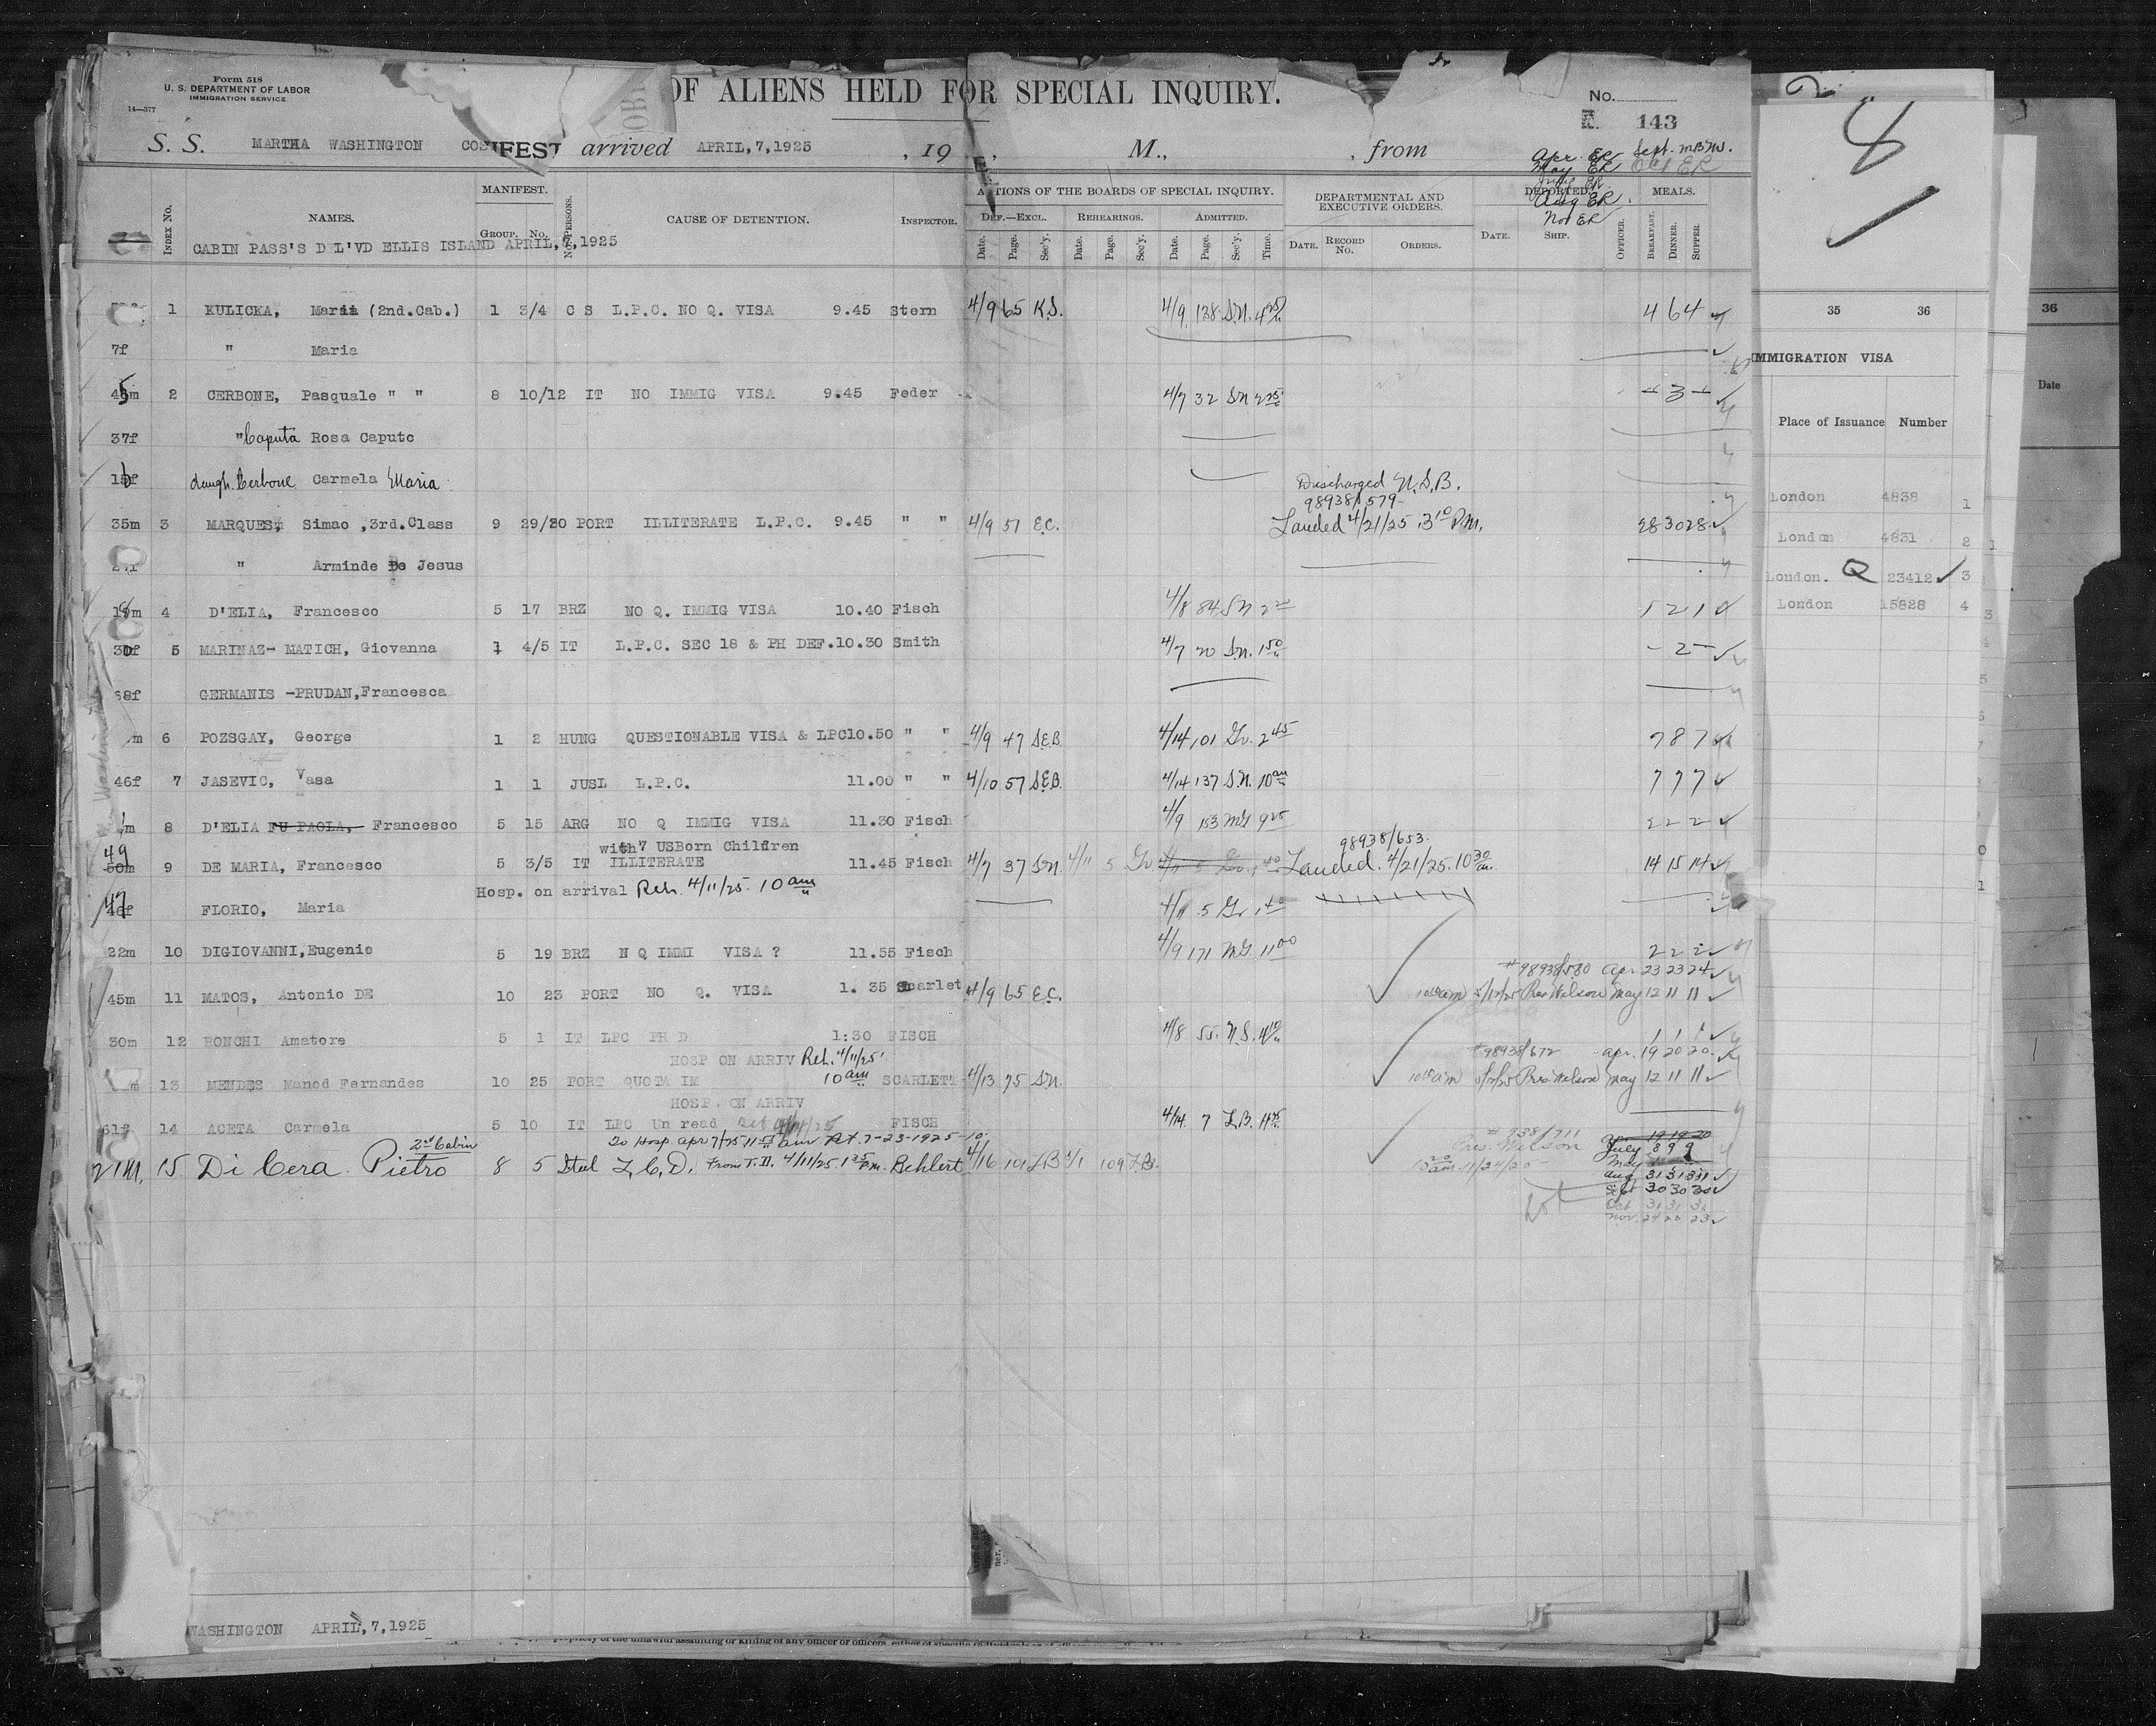 Form 518
U. S. DEPARTMENT OF LABOR
IMMIGRATION SERVICE
14—577
OF ALIENS HELD FOR SPECIAL INQUIRY.
No.
143
S. S. MARTHA WASHINGTON COS IFEST arrived APRIL,7,1925 , 19 , M., , from
Apr. ER Sept. MBM.
May ER Oct ER
July ER.
Aug ER.
Nov ER
INDEX No. NAMES. MANIFEST. Group. No. No. PERSONS. CAUSE OF DETENTION. INSPECTOR. ACTIONS OF THE BOARDS OF SPECIAL INQUIRY. DEPARTMENTAL AND EXECUTIVE ORDERS. DEPORTED. MEALS.
DEF.—EXCL. REHEARINGS. ADMITTED.
Date. Page. Sec'y. Date. Page. Sec'y. Date. Page. Sec'y. Time. DATE. RECORD No. ORDERS. DATE. SHIP. OFFICER. BREAKFAST. DINNER. SUPPER.
CABIN PASS'S D L'VD ELLIS ISLAND APRIL,7,1925
1 KULICKA, Maria (2nd.Cab.) 1 3/4 C S L.P.C. NO Q. VISA 9.45 Stern 4/9 65 K.S. 4/9 138 S.N. 4 4 6 4
7f " Maria
2 CERBONE, Pasquale " " 8 10/12 IT NO IMMIG VISA 9.45 Feder 4/7 32 SN 2 3
37f " Caputa Rosa Caputo
daugh. Cerbone Carmela Maria
Discharged N.S.B.
98938/579
35m 3 MARQUES, Simao ,3rd.Class 9 29/30 PORT ILLITERATE L.P.C. 9.45 " " 4/9 51 E.C. Landed 4/21/25 3 10 P.M. 28 30 28
" Arminde De Jesus
4 D'ELIA, Francesco 5 17 BRZ NO Q. IMMIG VISA 10.40 Fisch 4/8 84 SN 2 20 5 2 1
5 MARINAZ- MATICH, Giovanna 1 4/5 IT L.P.C. SEC 18 & PH DEF. 10.30 Smith 4/7 20 S.N. 1 50 - 2 -
68f GERMANIS -PRUDAN,Francesca
m 6 POZSGAY, George 1 2 HUNG QUESTIONABLE VISA & LPC 10.50 " " 4/9 47 S.E.B. 4/14 101 Gv. 2 45 7 8 7
46f 7 JASEVIC, Vasa 1 1 JUSL L.P.C. 11.00 " " 4/10 57 S.E.B. 4/14 137 S.N. 10 am 7 7 7
m 8 D'ELIA FU PAOLA, Francesco 5 15 ARG NO Q IMMIG VISA 11.30 Fisch 4/9 153 MG 9 25 2 2 2
with 7 USBorn Children
98938/653.
49
50m 9 DE MARIA, Francesco 5 3/5 IT ILLITERATE 11.45 Fisch 4/7 37 S.N. 4/11 5 Gv. Landed. 4/21/25. 10 30 am. 14 15 14
Hosp. on arrival Reh. 4/11/25. 10 am
47
FLORIO, Maria 4/11 5 Gv 1 40
22m 10 DIGIOVANNI,Eugenio 5 19 BRZ N Q IMMI VISA ? 11.55 Fisch 4/9 171 MG 11 00 2 2 2
# 98938/580 Apr 23 23 24
45m 11 MATOS, Antonio DE 10 23 PORT NO Q. VISA 1. 35 Scarlet 4/9 65 E.C. Pres Wilson May 12 11 11
30m 12 RONCHI Amatore 5 1 IT LPC PH D 1:30 FISCH 4/8 55 N.S. 4 10 1 1 1
HOSP ON ARRIV Reh. 4/11/25 10 am
# 98938/672 apr. 19 20 20
m 13 MENDES Manod Fernandes 10 25 PORT QUOTA IM SCARLETT 4/13 75 S.N. Pres. Wilson May 12 11 11
HOSP. ON ARRIV
61f 14 ACETA Carmela 5 10 IT LPC Un read FISCH 4/14 7 L.B. 11 25
To Hosp. Apr 7/25 11 55 am Ret. 7-23-1925-10
# 938/711
Pres. Wilson
2nd Cabin
21m. 15. Di Cera Pietro 8 5 Ital L.C.D. From T.D. 4/11/25. 1 35 P.m. Behlert 4/16 101 LB 109 L.B. 11/24/25
Apr 19 19 20
July 8 9 9
May
Aug 31 31 31
Sept 30 30 30
Oct 31 31 31
Nov. 24 23 23
WASHINGTON APRIL,7,1925
8
35 36
36
IMMIGRATION VISA
Date
Place of Issuance Number
London 4838 1
London 4831 2
London. Q 23412 3
London 15828 4